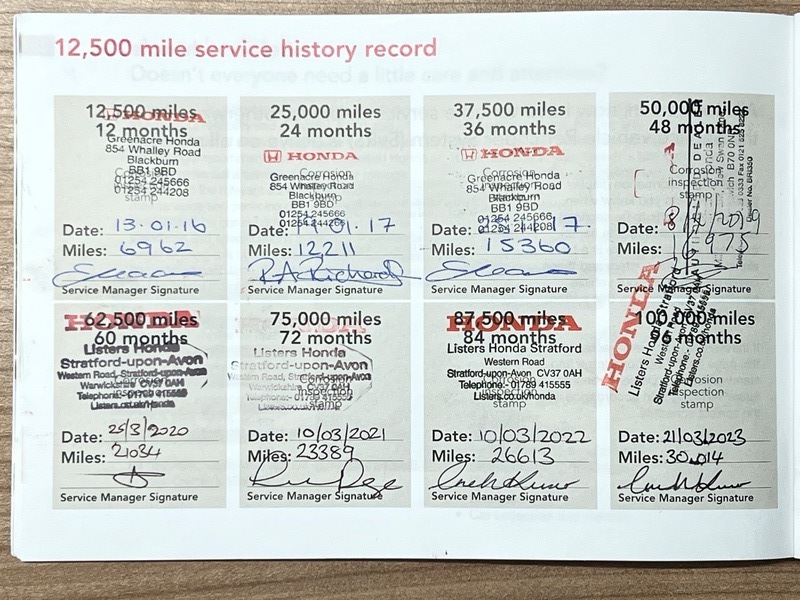 12,500 mile service history record
12,500 miles
12 months
HONDA
Greenacre Honda
854 Whalley Road
Blackburn
BB1 9BD
01254 245666
01254 244208
stamp
Date: 13.01.16
Miles: 6962
Service Manager Signature
25,000 miles
24 months
HONDA
Greenacre Honda
854 Whalley Road
Blackburn
BB1 9BD
01254 245666
Date: 01.17
Miles: 12,211
Service Manager Signature
37,500 miles
36 months
HONDA
Corrosion
Greenacre Honda
854 Whalley Road
Blackburn
BB1 9BD
01254 245666
01254 244208
Date: 17.
Miles: 15360
Service Manager Signature
50,000 miles
48 months
Corrosion
inspection
stamp
Date: 2019
Miles: 975
Service Manager Signature
62,500 miles
60 months
HONDA
Listers Honda
Stratford-upon-Avon
Western Road, Stratford-upon-Avon
Warwickshire CV37 0AH
Telephone:- 01789 415555
Listers.co.uk/honda
Date: 25/3/2020
Miles: 21034
Service Manager Signature
75,000 miles
72 months
HONDA
Listers Honda
Stratford-upon-Avon
Western Road, Stratford-upon-Avon
Corrosion
Warwickshire CV37 0AH
inspection
stamp
Date: 10/03/2021
Miles: 23389
Service Manager Signature
87,500 miles
84 months
HONDA
Listers Honda Stratford
Western Road
Stratford-upon-Avon CV37 0AH
Telephone:- 01789 415555
Listers.co.uk/honda
stamp
Date: 10/03/2022
Miles: 26613
Service Manager Signature
100,000 miles
96 months
HONDA
Listers Honda Stratford
Western Road
Stratford-upon-Avon CV37 0AH
Telephone:- 01789 415555
Listers.co.uk/honda
Corrosion
inspection
stamp
Date: 21/03/2023
Miles: 30,014
Service Manager Signature